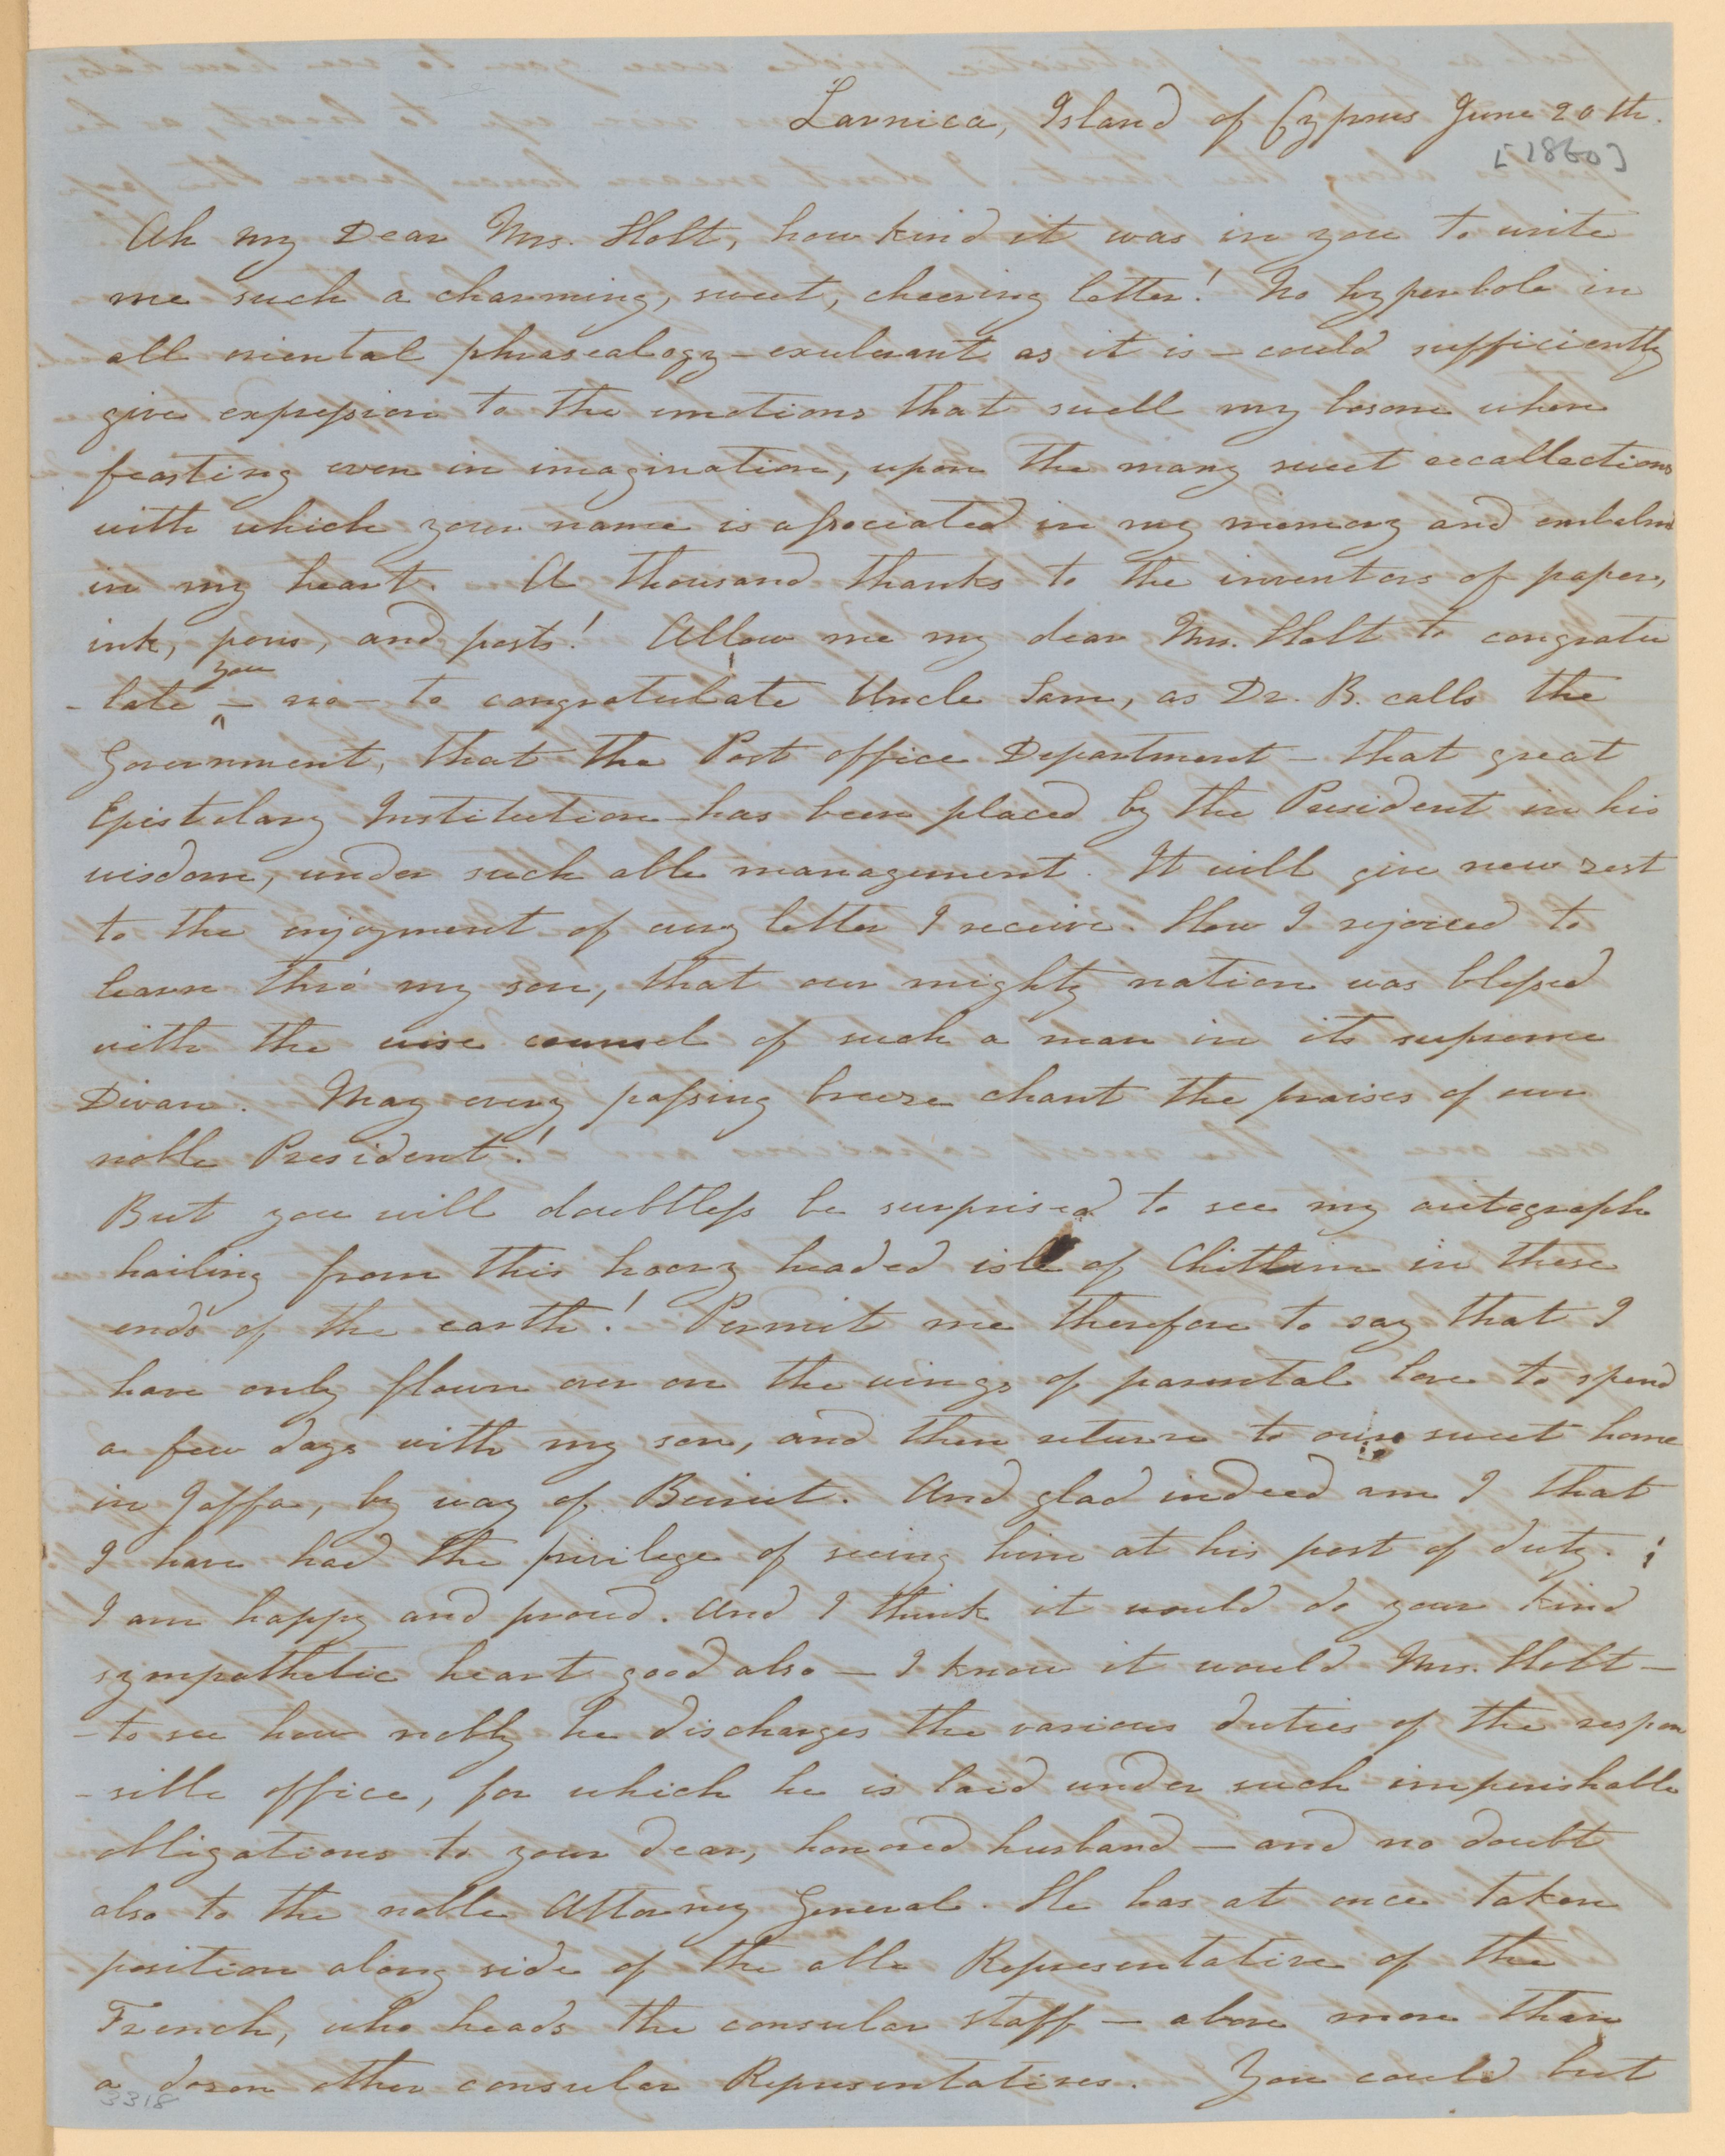 Larnica, Island of Cyprus June 20th.
[1860]
Ah my Dear Mrs. Holt, how kind it was in you to write
me such a charming, sweet, cheering letter! No hyperbole in
all oriental phrasealogy – exuberant as it is – could sufficiently
give expression to the emotions that swell my bosom when
feasting even in imagination, upon the many sweet recallections
with which your name is associated in my memory and embalmd
in my heart. A thousand thanks to the inventors of paper,
ink, pens, and posts! Allow me my dear Mrs. Holt to congratu
you
- late – no – to congratulate Uncle Sam, as Dr. B. calls the
Government, that the Post office Department – that great
Epistolary Institution – has been placed by the President in his
wisdom, under such able management. It will give new zest
to the enjoyment of every letter I receive. How I rejoiced to
learn thro' my son, that our mighty nation was blessed
with the wise counsel of such a man in its supreme
Divan. May every passing breeze chant the praises of our
noble President!
But you will doubtless be surprised to see my autograph
hailing from this hoary headed isle of Chittim in these
ends of the earth! Permit me therefore to say that I
have only flown over on the wings of parental love to spend
a few days with my son, and then return to our sweet home
in Jaffa, by way of Beirut. And glad indeed am I that
I have had the privilege of seeing him at his post of duty.
I am happy and proud. And I think it would do your kind
sympathetic heart good also – I know it would Mrs. Holt –
- to see how nobly he discharges the various duties of the respon
- sible office, for which he is laid under such imperishable
obligations to your dear, honored husband – and no doubt
also to the noble Attorney General. He has at once taken
position along side of the able Representative of the
French, who heads the consular staff – above more than
a dozen other consular Representatives. You could but
3318